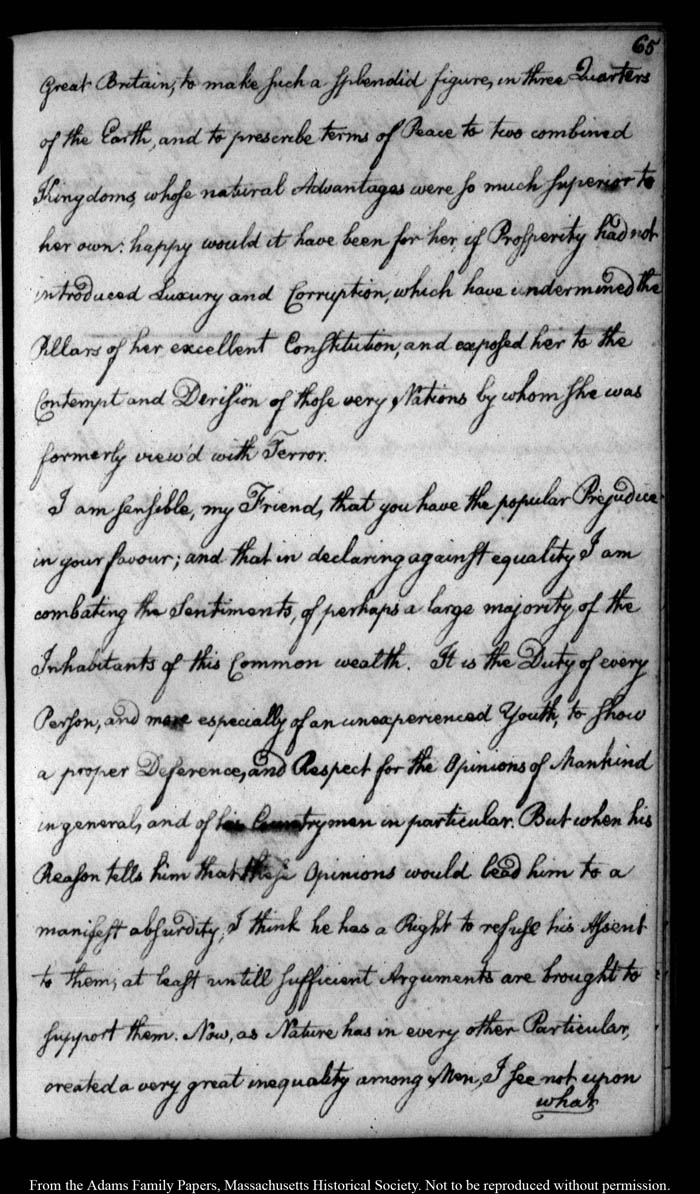 65
Great Britain, to make such a splendid figure, in three Quarters
of the Earth, and to prescribe terms of Peace to two combined
Kingdoms, whose natural Advantages were so much superior to
her own: happy would it have been for her, if Prosperity had not
introduced Luxury and Corruption, which have undermined the
Pillars of her excellent Constitution, and exposed her to the
Contempt and Derision of those very Nations by whom she was
formerly view'd with Terror.
I am sensible, my Friend, that you have the popular Prejudice
in your favour; and that in declaring against equality I am
combating the Sentiments, of perhaps a large majority of the
Inhabitants of this Common wealth. It is the Duty of every
Person, and more especially of an unexperienced Youth, to show
a proper Deference, and Respect for the Opinions of Mankind
in general, and of his Countrymen in particular. But when his
Reason tells him that these Opinions would lead him to a
manifest absurdity, I think he has a Right to refuse his Assent
to them, at least untill sufficient Arguments are brought to
support them. Now, as Nature has in every other Particular,
created a very great inequality among Men, I see not upon
what
From the Adams Family Papers, Massachusetts Historical Society. Not to be reproduced without permission.